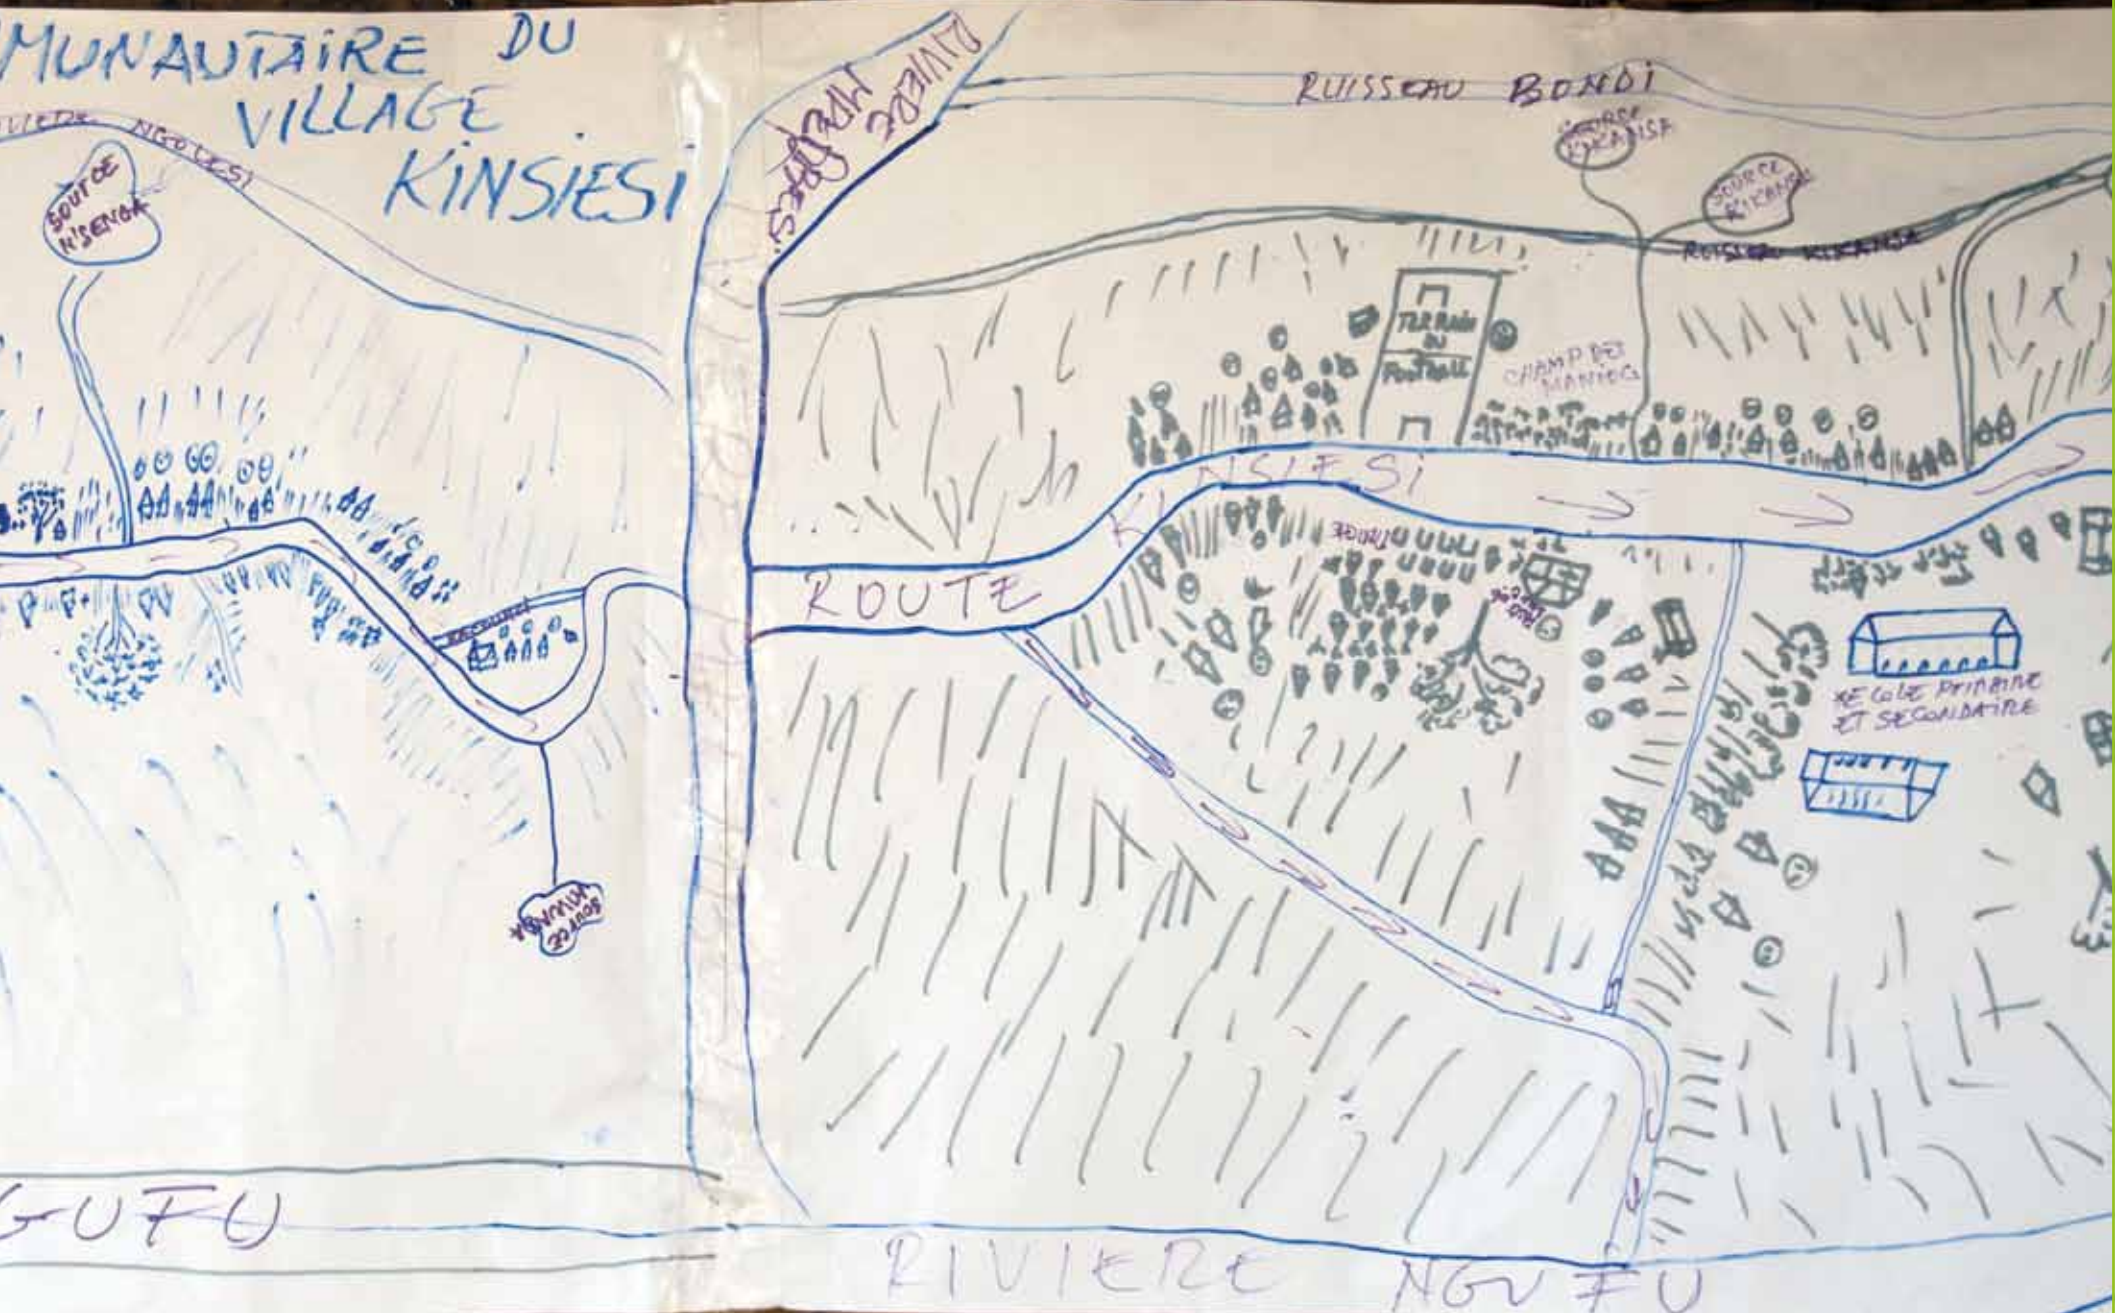 MUNAUTAIRE DU
VILLAGE
KINSIESI
NGOLESI
SOURCE
N'SENGA
RIVIERE
RUISSEAU BONDI
SOURCE
KIKANSA
SOURCE
KIKANSA
RUISSEAU KIKANSA
TERRAIN
DU
FOOTBALL
CHAMP DES
MANIOC
ROUTE KINSIESI
ECOLE PRIMAIRE
ET SECONDAIRE
SOURCE
GUFU
RIVIERE NGUFU